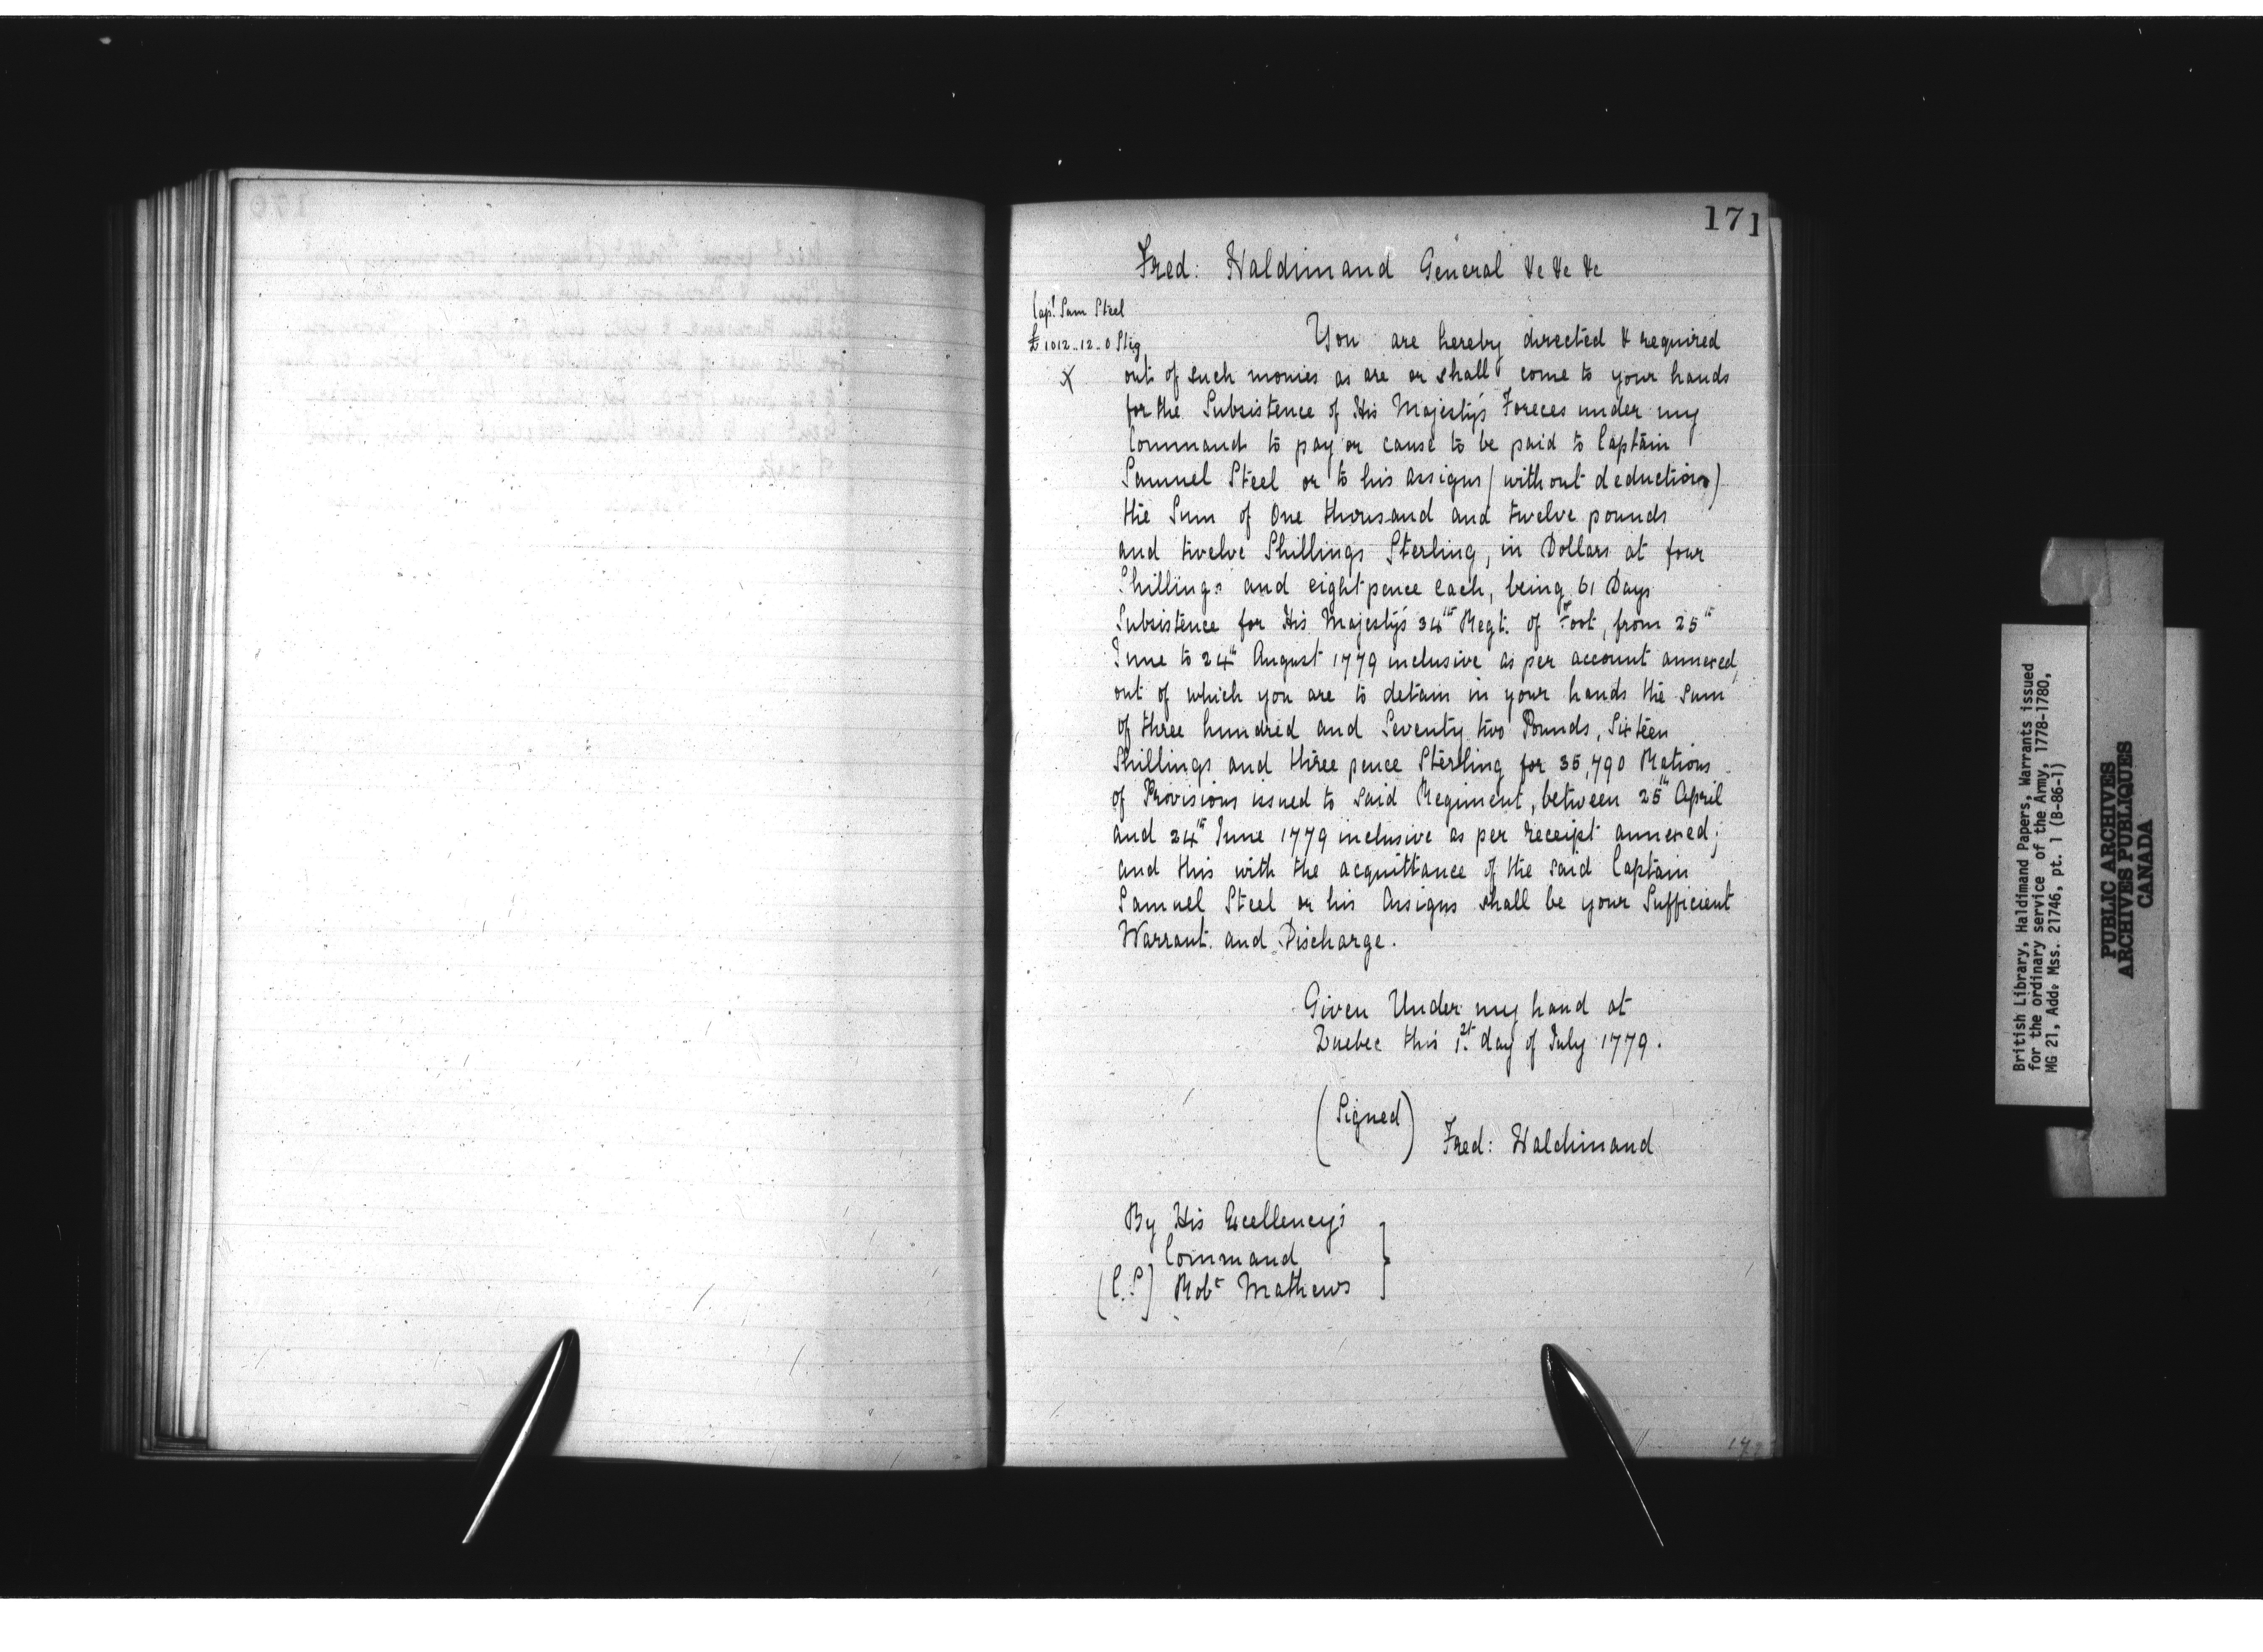 171
Fred: Haldimand General &c &c &c
Capt. Sam Steel
£1012-12-0 Stlg
X
You are hereby directed & required
out of such monies as are or shall come to your hands
for the Subsistence of His Majesty's Foreces under my
Command to pay or cause to be paid to Captain
Samuel Steel or to his assigns (without deduction)
the Sum of One thousand and twelve pounds
and twelve Shillings Sterling, in Dollars at four
Shillings and eight pence each, being 61 Days
Subsistence for His Majesty's 34th Regt. of Foot, from 25th
June to 24th August 1779 inclusive as per account annexed,
out of which you are to detain in your hands the sum
of three hundred and Seventy two Pounds, Sixteen
Shillings and three pence Sterling for 35,790 Rations
of Provisions issued to said Regiment, between 25th April
and 24th June 1779 inclusive as per receipt annexed;
and this with the acquittance of the said Captain
Samuel Steel or his Assigns shall be your Sufficient
Warrant and Discharge.
Given Under my hand at
Quebec this 1st day of July 1779.
(Signed)
Fred: Haldimand
By His Excellency's
Command
Robt Mathews
British Library, Haldimand Papers, Warrants issued
for the ordinary service of the Army, 1778-1780,
MG 21, Add. Mss. 21746, pt. 1 (B-86-1)
PUBLIC ARCHIVES
ARCHIVES PUBLIQUES
CANADA